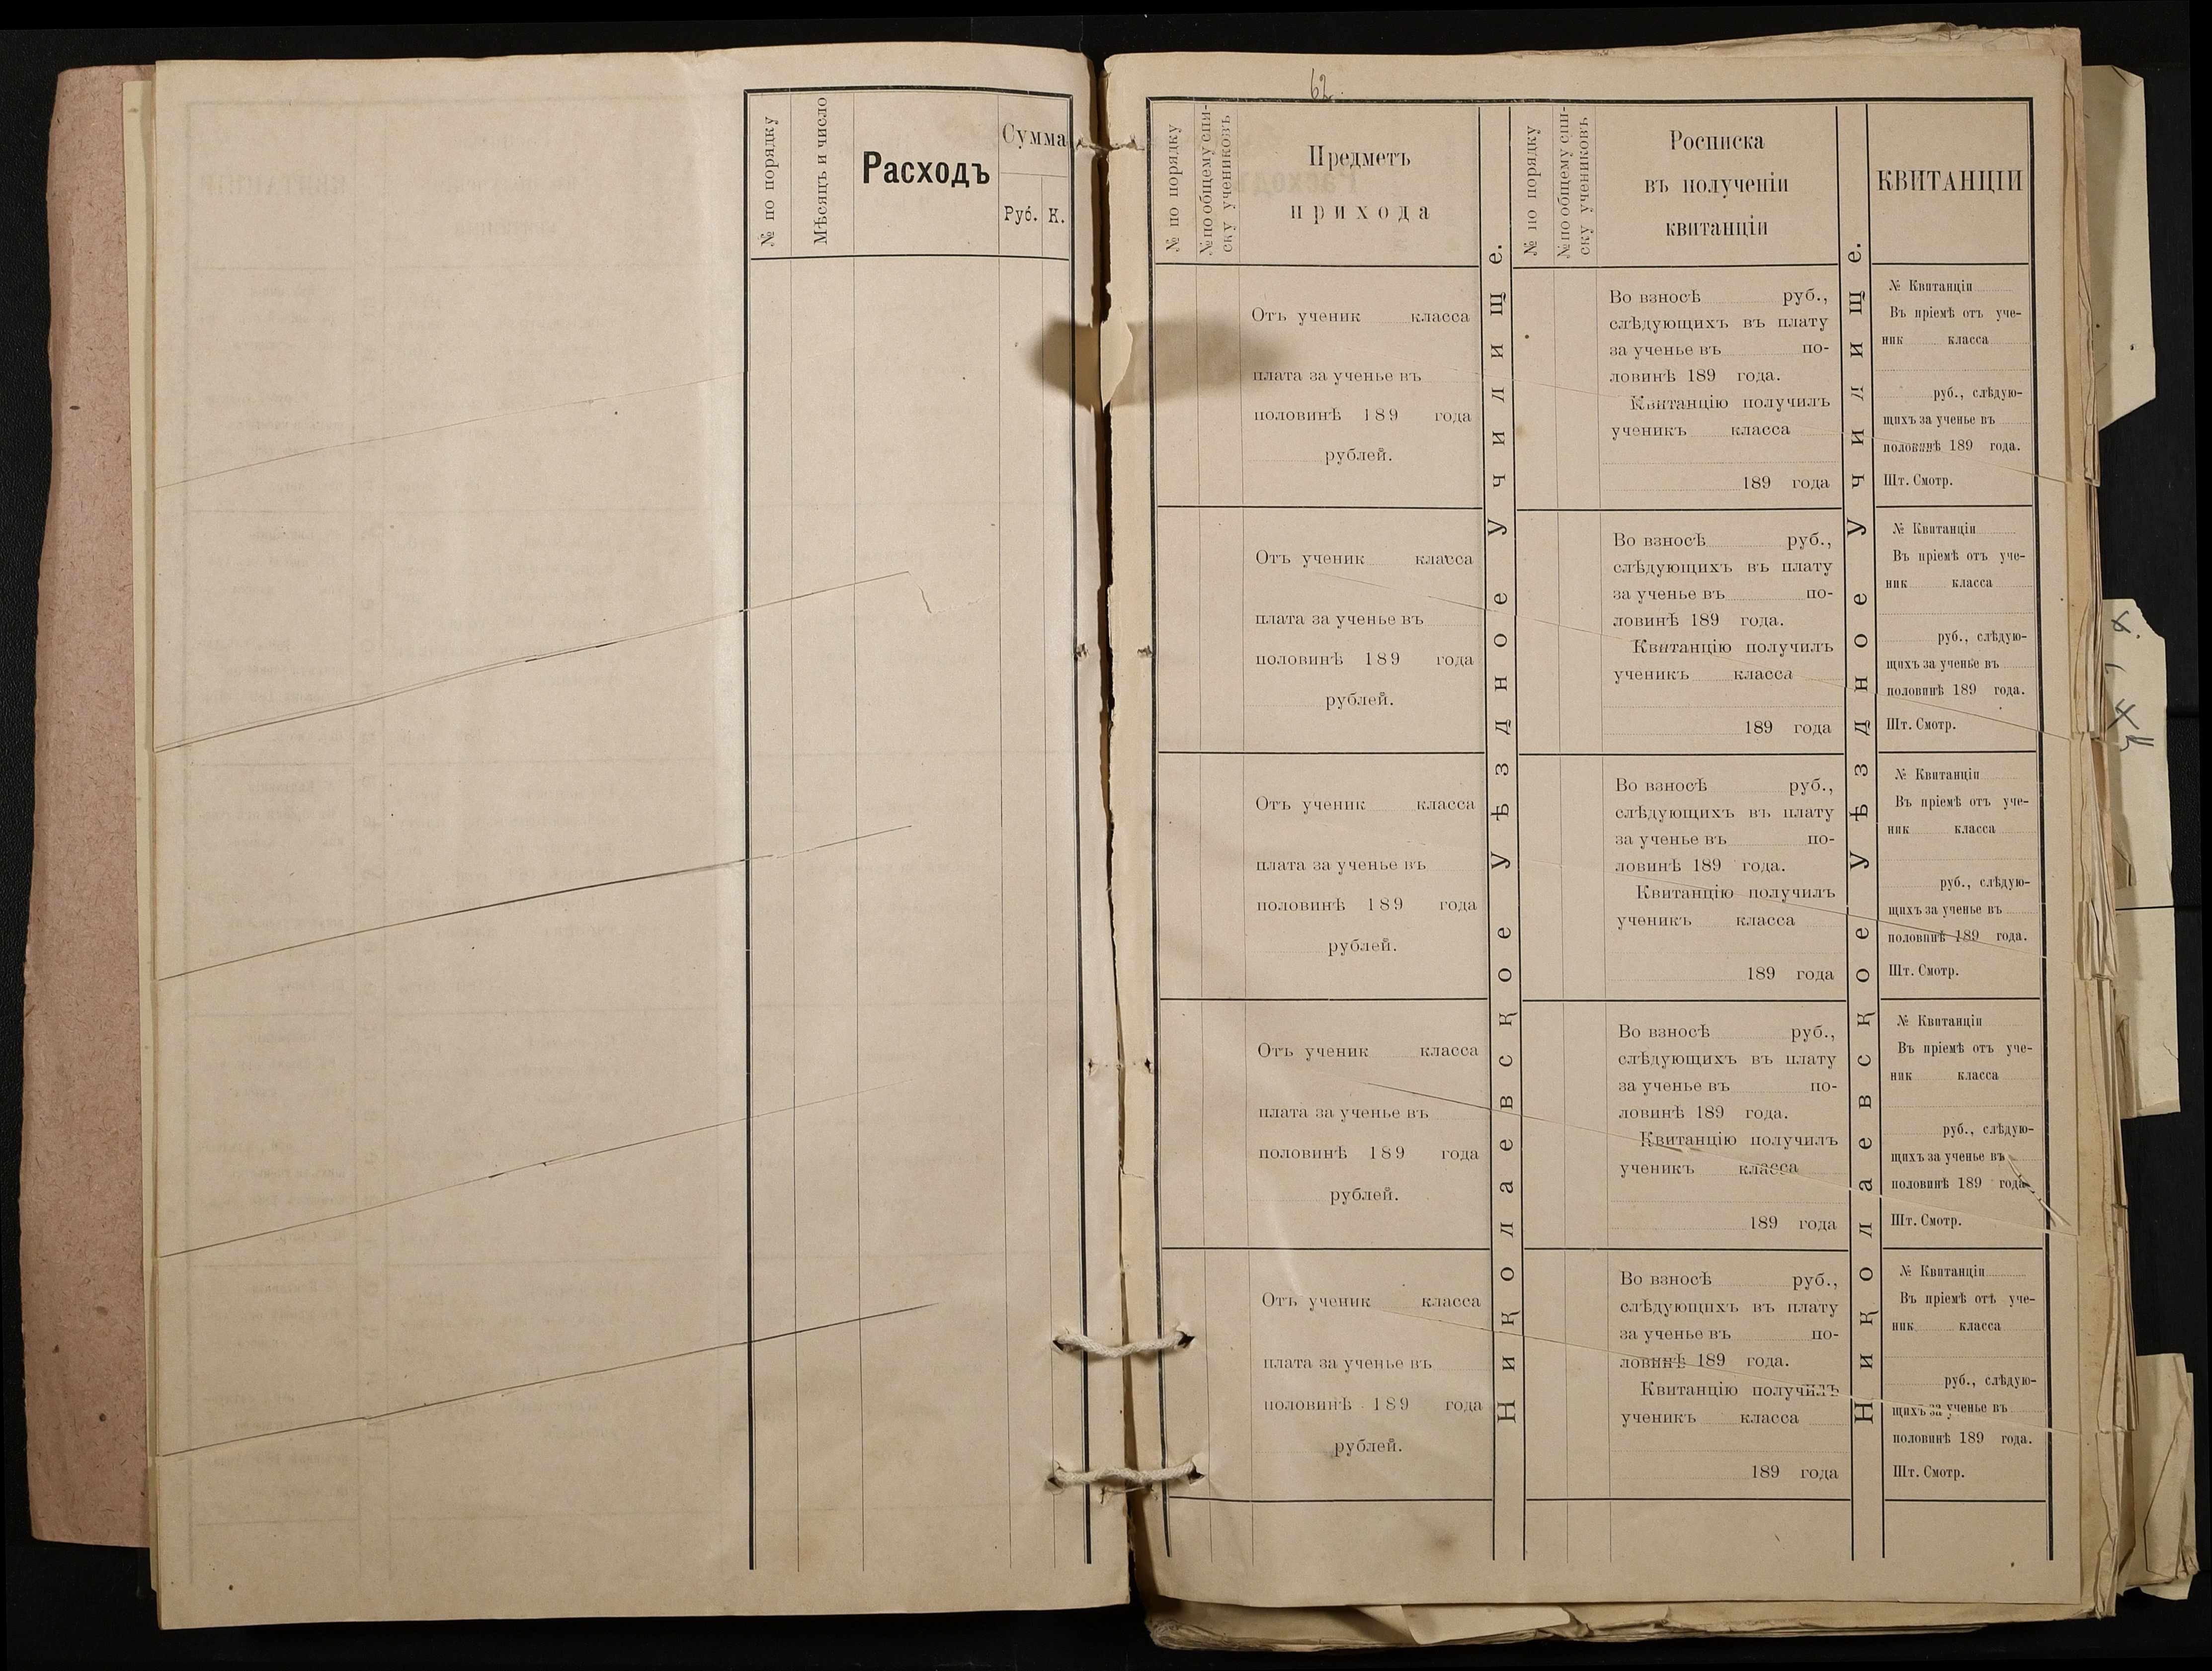 № по порядку
Мѣсяцъ и число
Расходъ
Сумма
Руб. К.
62.
№ по порядку
№ по общему спи-
ску учениковъ
Предметъ
прихода
Николаевское Уѣздное Училище.
№ по порядку
№ по общему спи-
ску учениковъ
Росписка
въ полученіи
квитанціи
Николаевское Уѣздное Училище.
КВИТАНЦІИ
Отъ ученик класса
плата за ученье въ
половинѣ 189 года
рублей.
Во взносѣ руб.,
слѣдующихъ въ плату
за ученье въ по-
ловинѣ 189 года.
Квитанцію получилъ
ученикъ класса
189 года
№ Квитанціи
Въ пріемѣ отъ уче-
ник класса
руб., слѣдую-
щихъ за ученье въ
половинѣ 189 года.
Шт. Смотр.
Отъ ученик класса
плата за ученье въ
половинѣ 189 года
рублей.
Во взносѣ руб.,
слѣдующихъ въ плату
за ученье въ по-
ловинѣ 189 года.
Квитанцію получилъ
ученикъ класса
189 года
№ Квитанціи
Въ пріемѣ отъ уче-
ник класса
руб., слѣдую-
щихъ за ученье въ
половинѣ 189 года.
Шт. Смотр.
Отъ ученик класса
плата за ученье въ
половинѣ 189 года
рублей.
Во взносѣ руб.,
слѣдующихъ въ плату
за ученье въ по-
ловинѣ 189 года.
Квитанцію получилъ
ученикъ класса
189 года
№ Квитанціи
Въ пріемѣ отъ уче-
ник класса
руб., слѣдую-
щихъ за ученье въ
половинѣ 189 года.
Шт. Смотр.
Отъ ученик класса
плата за ученье въ
половинѣ 189 года
рублей.
Во взносѣ руб.,
слѣдующихъ въ плату
за ученье въ по-
ловинѣ 189 года.
Квитанцію получилъ
ученикъ класса
189 года
№ Квитанціи
Въ пріемѣ отъ уче-
ник класса
руб., слѣдую-
щихъ за ученье въ
половинѣ 189 года
Шт. Смотр.
Отъ ученик класса
плата за ученье въ
половинѣ 189 года
рублей.
Во взносѣ руб.,
слѣдующихъ въ плату
за ученье въ по-
ловинѣ 189 года.
Квитанцію получилъ
ученикъ класса
189 года
№ Квитанціи
Въ пріемѣ отъ уче-
ник класса
руб., слѣдую-
щихъ за ученье въ
половинѣ 189 года.
Шт. Смотр.